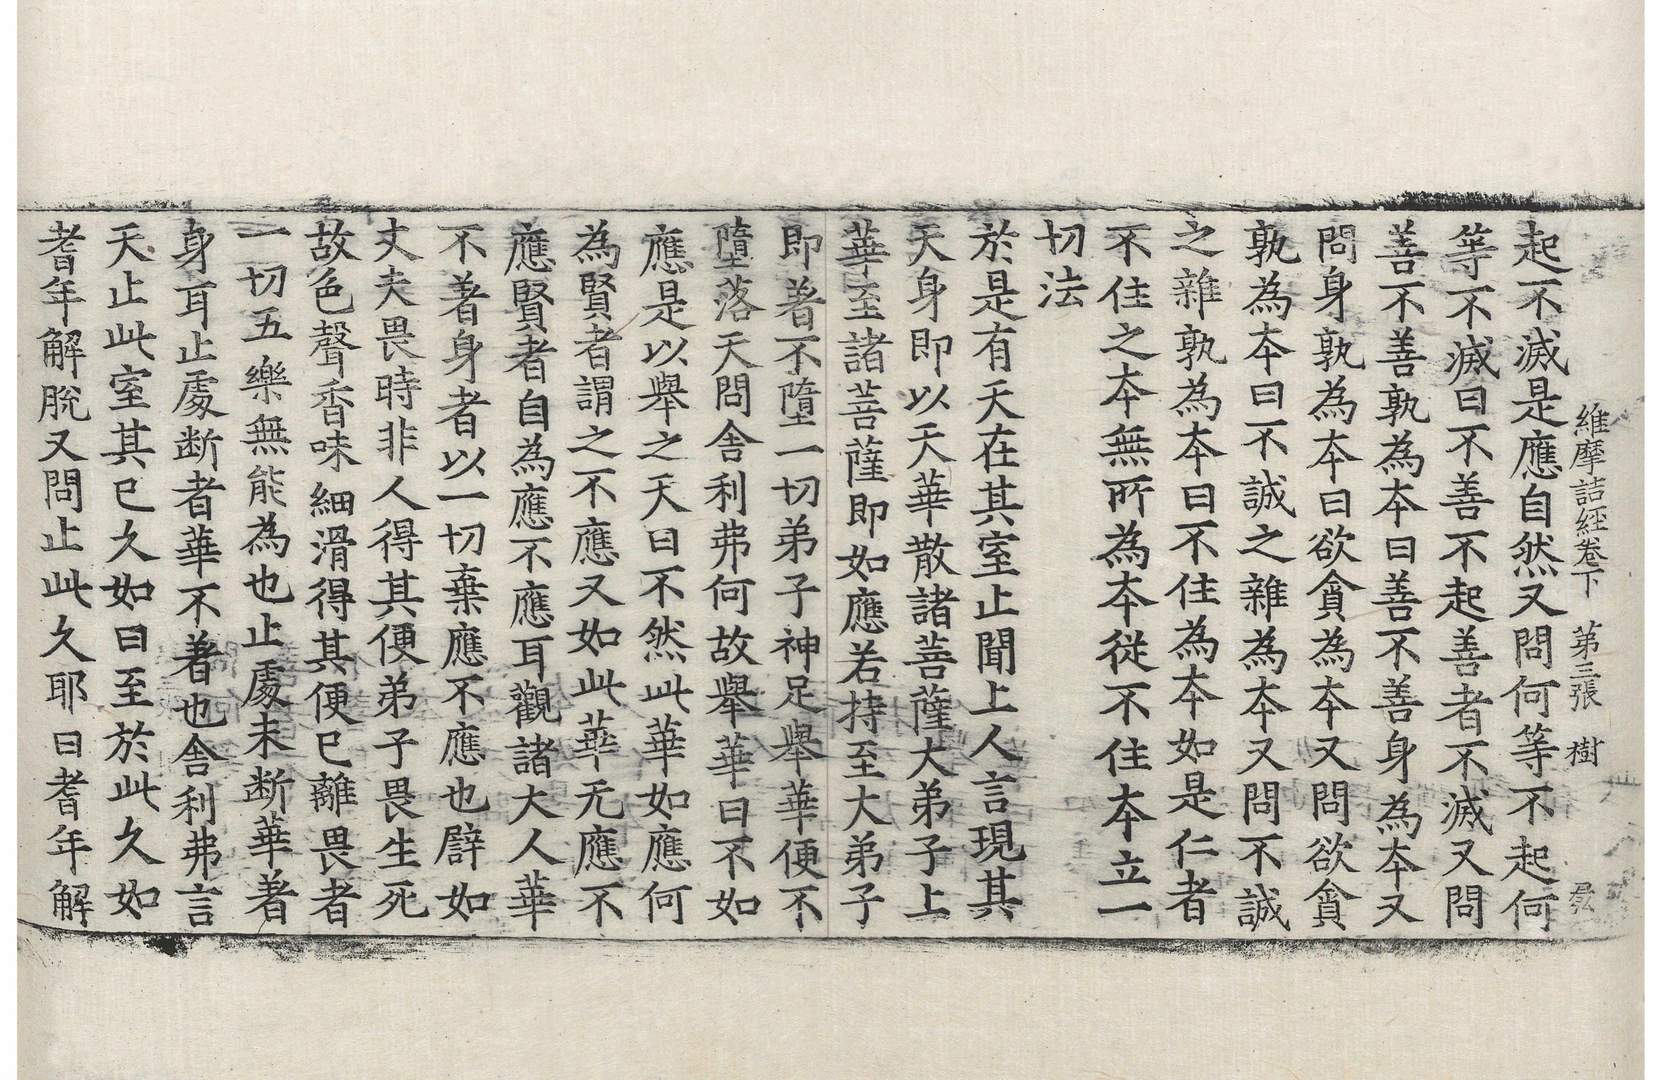 維摩詰經卷下　第三張　樹
起不滅是應自然又問何等不起何
等不滅曰不善不起善者不滅又問
善不善孰為本曰善不善身為本又
問身孰為本曰欲貪為本又問欲貪
孰為本曰不誠之雜為本又問不誠
之雜孰為本曰不住為本如是仁者
不住之本無所為本從不住本立一
切法
於是有天在其室止聞上人言現其
天身即以天華散諸菩薩大弟子上
華至諸菩薩即如應若持至大弟子
即著不墮一切弟子神足舉華便不
墮落天問舍利弗何故舉華曰不如
應是以舉之天曰不然此華如應何
為賢者謂之不應又如此華无應不
應賢者自為應不應耳觀諸大人華
不著身者以一切棄應不應也譬如
丈夫畏時非人得其便弟子畏生死
故色聲香味細滑得其便已離畏者
一切五樂無能為也止處未断華著
身耳止處断者華不著也舍利弗言
天止此室其已久如曰至於此久如
耆年解脫又問止此久耶曰耆年解